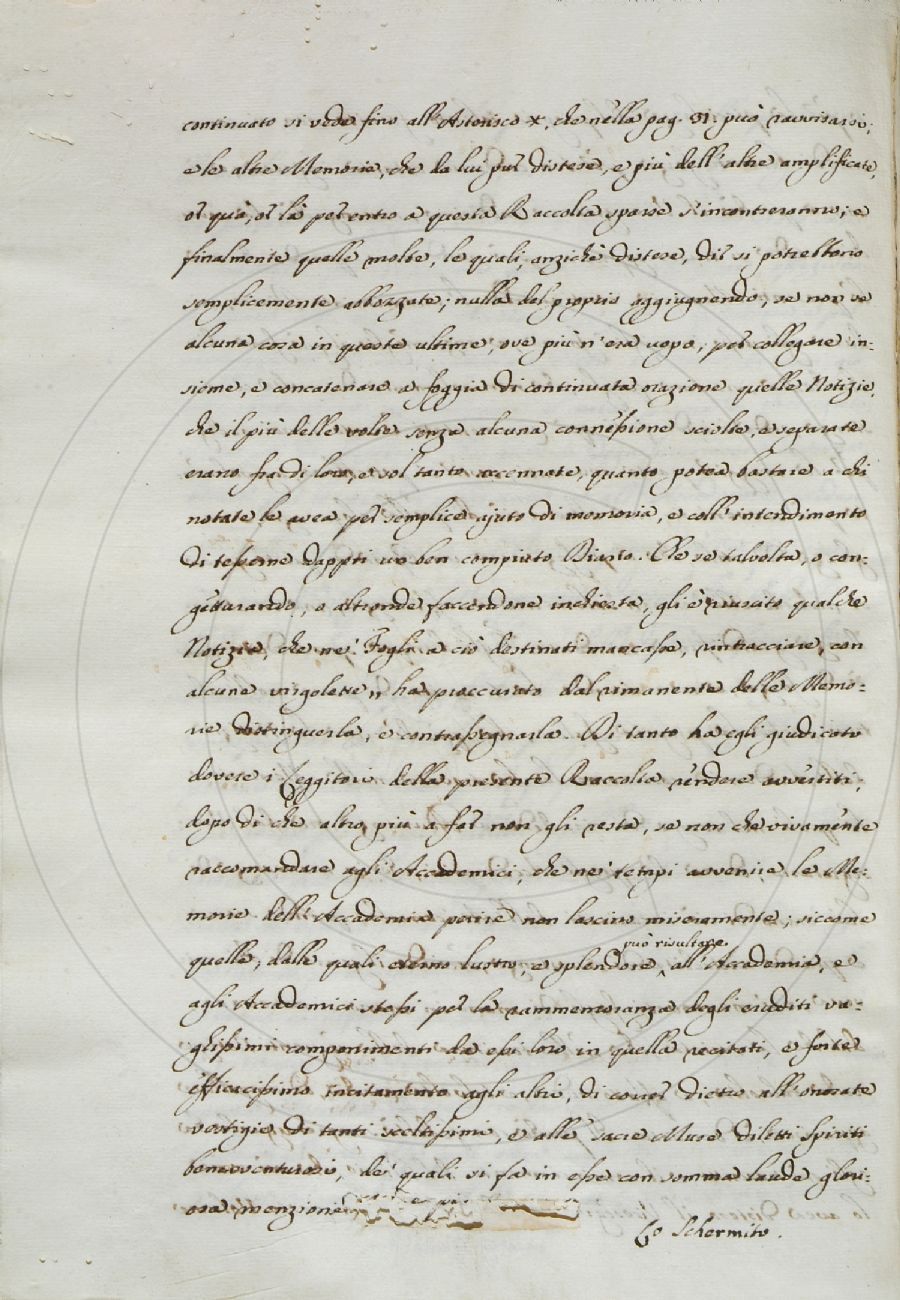 continuato si vede fino all'Asterisco *, che nella pag. 31. può ravvisarsi;
e le altre Memorie, che da lui pur distese, e più dell'altre amplificate,
or quà, or là per entro a questa Raccolta sparse s'incontreranno; e
finalmente quelle molte, le quali, anzichè distese, dir si potrebbono
semplicemente abbozzate; nulla del proprio aggiugnendo, se non se
alcuna cosa in queste ultime, ove più n'era uopo, per collegare in=
sieme, e concatenare a foggia di continuata orazione quelle Notizie,
che il più delle volte senza alcuna connessione sciolte, e separate
erano fra di loro, e sol tanto accennate, quanto potea bastare a chi
notate le avea per semplice ajuto di memoria, e coll'intendimento
di tesserne dappoi un ben compiuto Diario. Che se talvolta, o con=
getturando, o altronde faccendone inchiesta, gli è riuscito qualche
Notizia, che ne' Fogli a ciò destinati mancasse, rintracciare, con
alcune virgolette „ ha proccurato dal rimanente delle Memo=
rie distinguerla, e contrassegnarla. Di tanto ha egli giudicato
dovere i Leggitori della presente Raccolta rendere avvertiti;
dopo di che altro più a far non gli resta, se non che vivamente
raccomandare agli Accademici, che ne' tempi avvenire le Me=
morie dell'Accademia perire non lascino miseramente; siccome
quelle, dalle quali eterno lustro, e splendore può risultare all'Accademia, e
agli Accademici stessi per la rammemoranza degli eruditi va=
ghissimi componimenti da essi loro in quella recitati, e forte
efficacissimo incitamento agli altri, di correr dietro all'onorate
vestigie di tanti sceltissimi, e alle sacre Muse diletti Spiriti
bennavventurosi, de' quali si fa in esse con somma laude glori=
osa menzione
Lo Schermito.